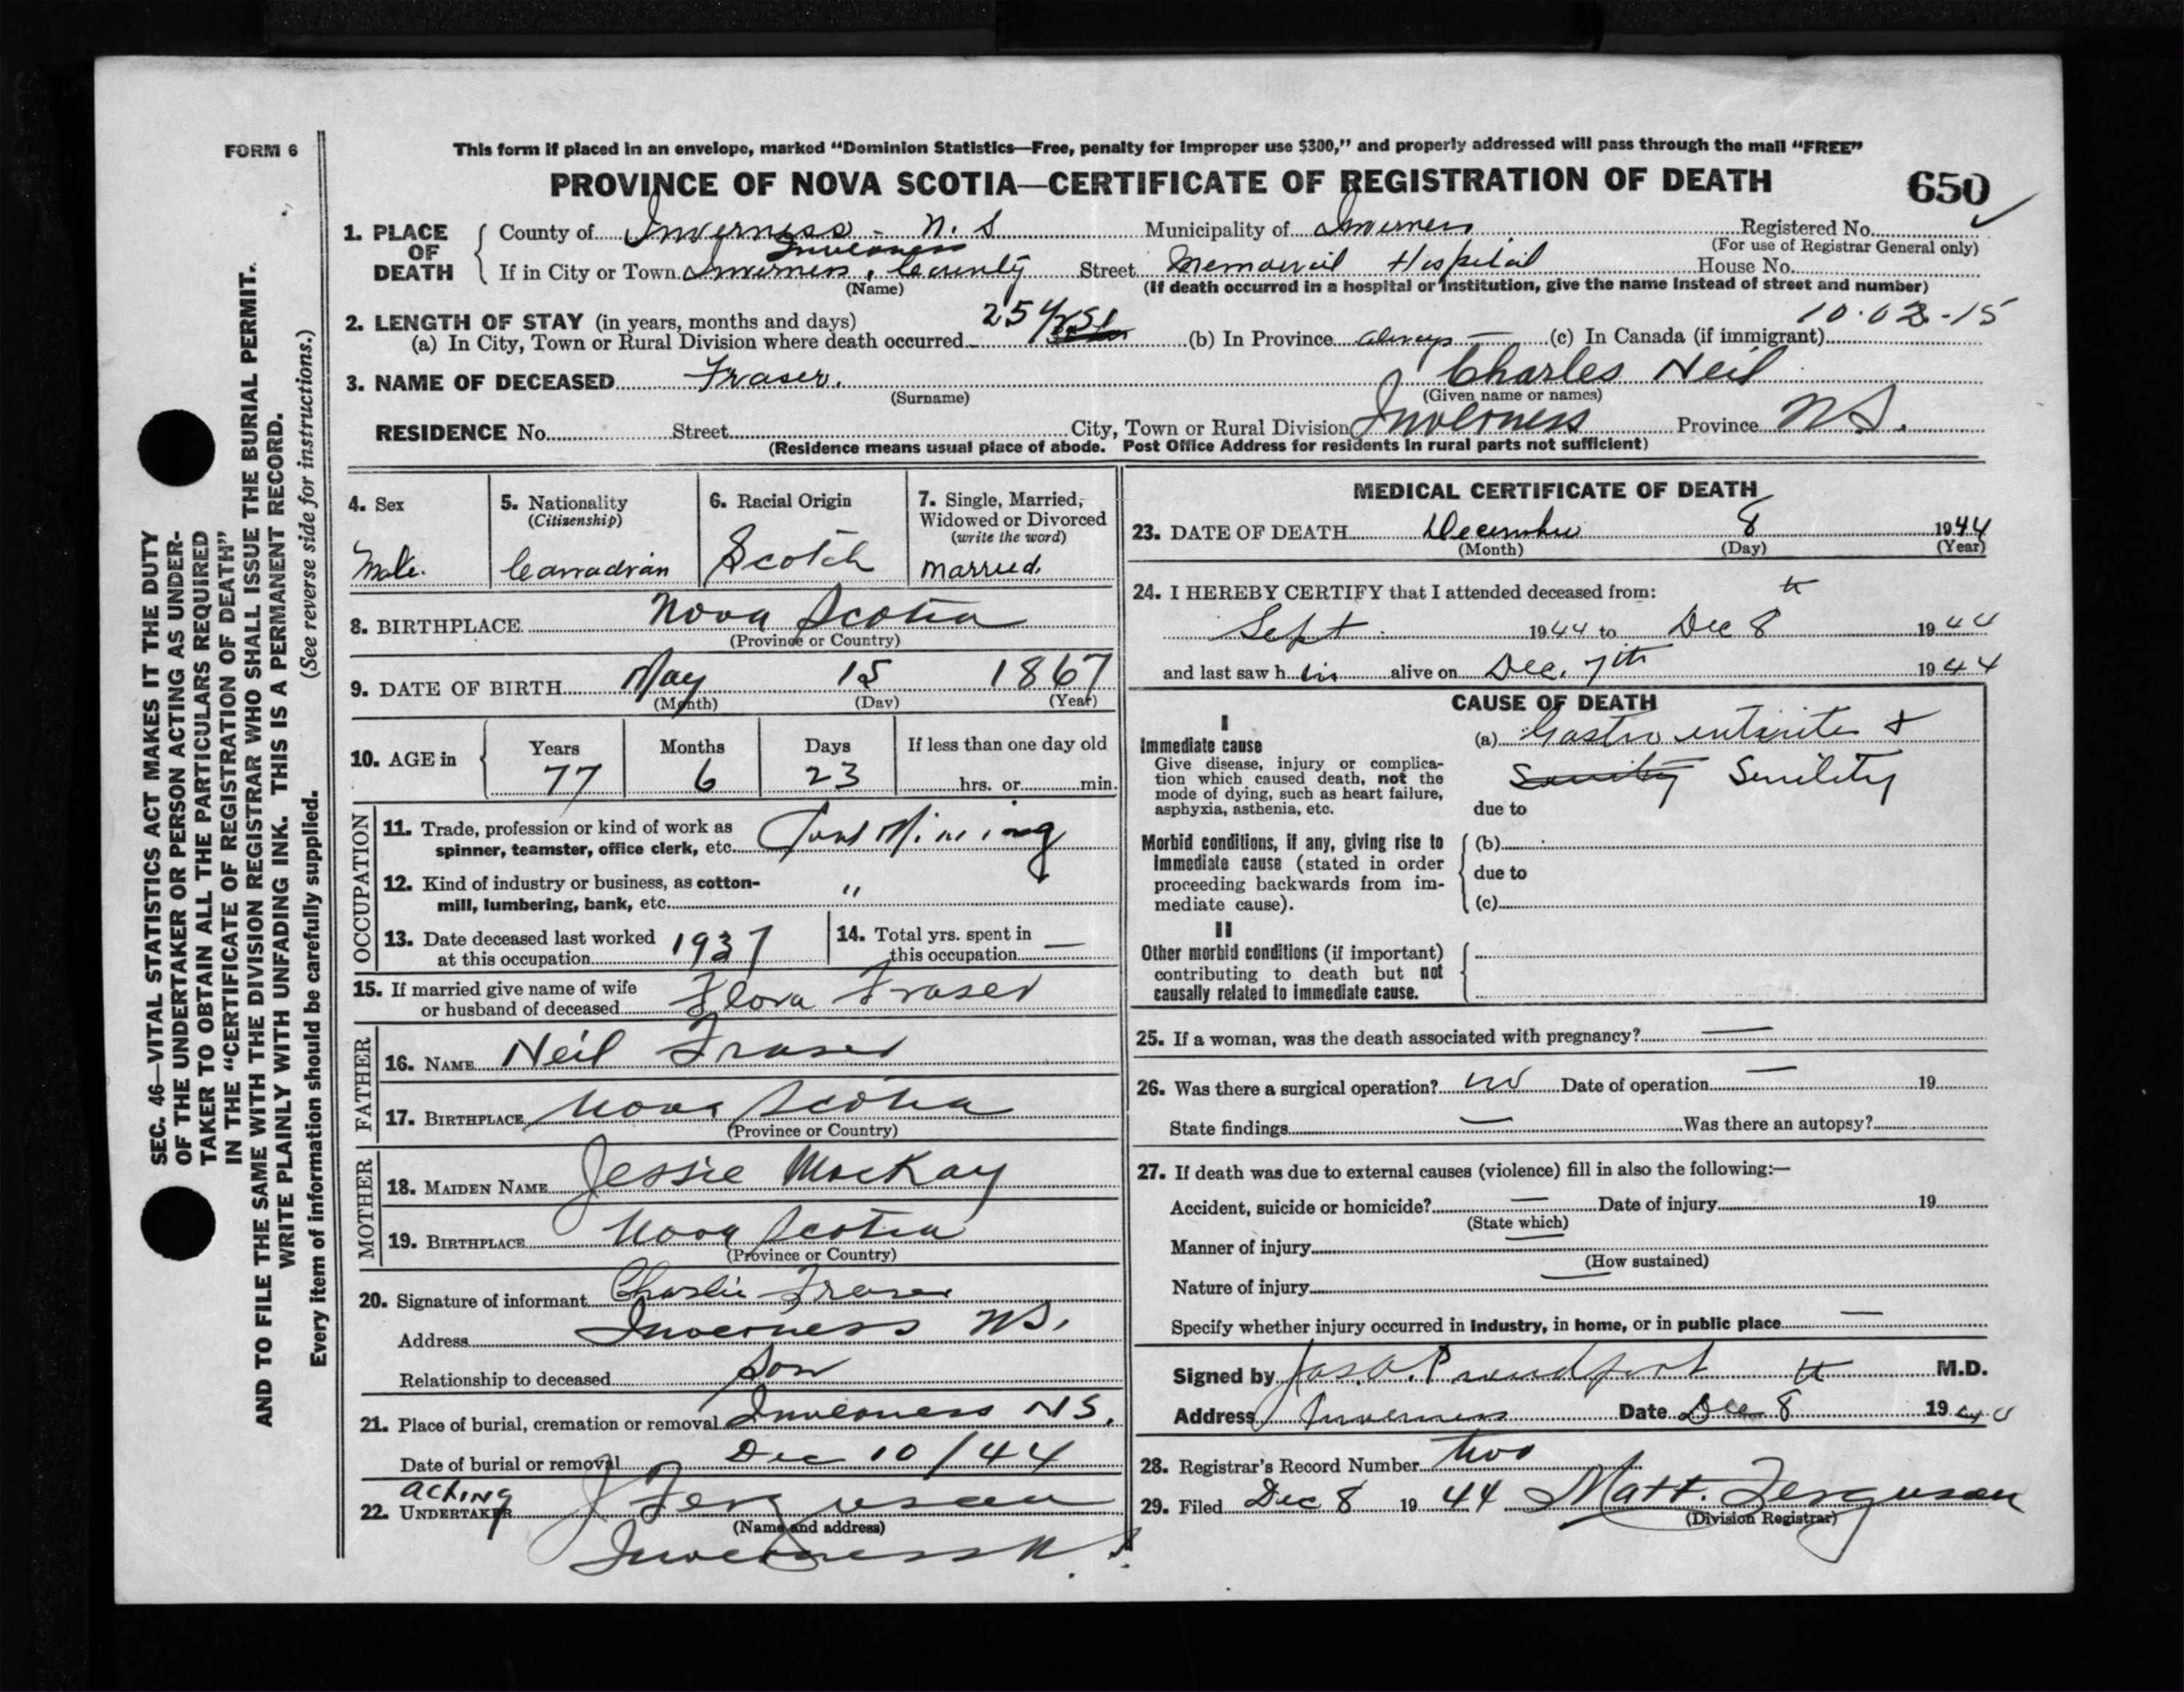 FORM 6
This form if placed in an envelope, marked "Dominion Statistics—Free, penalty for improper use $300," and properly addressed will pass through the mail "FREE"
PROVINCE OF NOVA SCOTIA—CERTIFICATE OF REGISTRATION OF DEATH
650
1. PLACE OF DEATH
County of Inverness - N. S Municipality of Inverness Registered No.
(For use of Registrar General only)
Inverness
If in City or Town Inverness, County Street Memorial Hospital House No.
(Name) (If death occurred in a hospital or institution, give the name instead of street and number)
2. LENGTH OF STAY (in years, months and days) 25 yrs 10·02-15
(a) In City, Town or Rural Division where death occurred (b) In Province always (c) In Canada (if immigrant)
3. NAME OF DECEASED Fraser. Charles Neil
(Surname) (Given name or names)
RESIDENCE No. Street City, Town or Rural Division Inverness Province N.S.
(Residence means usual place of abode. Post Office Address for residents in rural parts not sufficient)
4. Sex
Male.
5. Nationality
(Citizenship)
Canadian
6. Racial Origin
Scotch
7. Single, Married,
Widowed or Divorced
(write the word)
married.
8. BIRTHPLACE Nova Scotia
(Province or Country)
9. DATE OF BIRTH May 15 1867
(Month) (Day) (Year)
10. AGE in
Years Months Days If less than one day old
77 6 23 hrs. or min.
OCCUPATION
11. Trade, profession or kind of work as
spinner, teamster, office clerk, etc. Coal Mining
12. Kind of industry or business, as cotton-
mill, lumbering, bank, etc. "
13. Date deceased last worked
at this occupation 1937
14. Total yrs. spent in
this occupation —
15. If married give name of wife
or husband of deceased Flora Fraser
FATHER
16. NAME Neil Fraser
17. BIRTHPLACE Nova Scotia
(Province or Country)
MOTHER
18. MAIDEN NAME Jessie MacKay
19. BIRTHPLACE Nova Scotia
(Province or Country)
20. Signature of informant Charlie Fraser
Address Inverness NS.
Relationship to deceased Son
21. Place of burial, cremation or removal Inverness NS.
Date of burial or removal Dec 10/44
acting
22. UNDERTAKER J Ferguson
(Name and address)
Inverness N S.
MEDICAL CERTIFICATE OF DEATH
23. DATE OF DEATH December 8 1944
(Month) (Day) (Year)
24. I HEREBY CERTIFY that I attended deceased from:
Sept. 1944 to Dec 8th 1944
and last saw him alive on Dec. 7th 1944
CAUSE OF DEATH
I
Immediate cause
Give disease, injury or complica-
tion which caused death, not the
mode of dying, such as heart failure,
asphyxia, asthenia, etc.
(a) Gastro enteritis &
Senility
due to
Morbid conditions, if any, giving rise to
immediate cause (stated in order
proceeding backwards from im-
mediate cause).
(b)
due to
(c)
II
Other morbid conditions (if important)
contributing to death but not
causally related to immediate cause.
25. If a woman, was the death associated with pregnancy? —
26. Was there a surgical operation? no Date of operation — 19
State findings — Was there an autopsy?
27. If death was due to external causes (violence) fill in also the following:—
Accident, suicide or homicide? — Date of injury 19
(State which)
Manner of injury —
(How sustained)
Nature of injury —
Specify whether injury occurred in industry, in home, or in public place —
Signed by Jas. A. M.D.
Address Inverness Date Dec 8th 194
28. Registrar's Record Number two
29. Filed Dec 8 1944 Matt. Ferguson
(Division Registrar)
SEC. 46—VITAL STATISTICS ACT MAKES IT THE DUTY
OF THE UNDERTAKER OR PERSON ACTING AS UNDER-
TAKER TO OBTAIN ALL THE PARTICULARS REQUIRED
IN THE "CERTIFICATE OF REGISTRATION OF DEATH"
AND TO FILE THE SAME WITH THE DIVISION REGISTRAR WHO SHALL ISSUE THE BURIAL PERMIT.
WRITE PLAINLY WITH UNFADING INK. THIS IS A PERMANENT RECORD.
Every item of information should be carefully supplied. (See reverse side for instructions.)